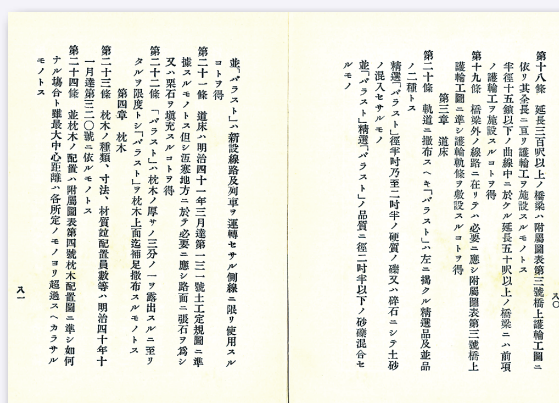 第十八條　延長三百呎以上ノ橋梁ハ附屬圖表第三號橋上護輪工圖ニ
依リ其全長ニ亘リ護輪工ヲ施設スルモノトス
半徑十五鎖以下ノ曲線中ニ於ケル延長五十呎以上ノ橋梁ニハ前項
ノ護輪工ヲ施設スルコトヲ得
第十九條　橋梁外ノ線路ニ在リテハ必要ニ應シ附屬圖表第三號橋上
護輪工圖ニ準シ護輪軌條ヲ敷設スルコトヲ得
第三章　道床
第二十條　軌道ニ撒布スヘキ「バラスト」ハ左ニ掲クル精選品及並品
ノ二種トス
精選「バラスト」徑半吋乃至二吋半ノ硬質ノ礫又ハ碎石ニシテ土砂
ノ混入セサルモノ
並「バラスト」精選「バラスト」ノ品質ニ徑二吋半以下ノ砂礫混合セ
ルモノ
八〇
並「バラスト」ハ新設線路及列車ヲ運轉セサル側線ニ限リ使用スル
コトヲ得
第二十一條　道床ハ明治四十一年三月達第一三一號土工定規圖ニ準
據スルモノトス但シ沍寒地方ニ於テ必要ニ應シ路面ニ張石ヲ爲シ
又ハ栗石ヲ填充スルコトヲ得
第二十二條　「バラスト」ハ枕木ノ厚サノ三分ノ一ヲ露出スルニ至リ
タルヲ限度トシ「バラスト」ヲ枕木上面迄補足撒布スルモノトス
第四章　枕木
第二十三條　枕木ノ種類、寸法、材質竝配置員數等ハ明治四十年十
一月達第三二〇號ニ依ルモノトス
第二十四條　並枕木ノ配置ハ附屬圖表第四號枕木配置圖ニ準シ如何
ナル場合ト雖最大中心距離ハ各所定ノモノヨリ超過スヘカラサル
モノトス
八一